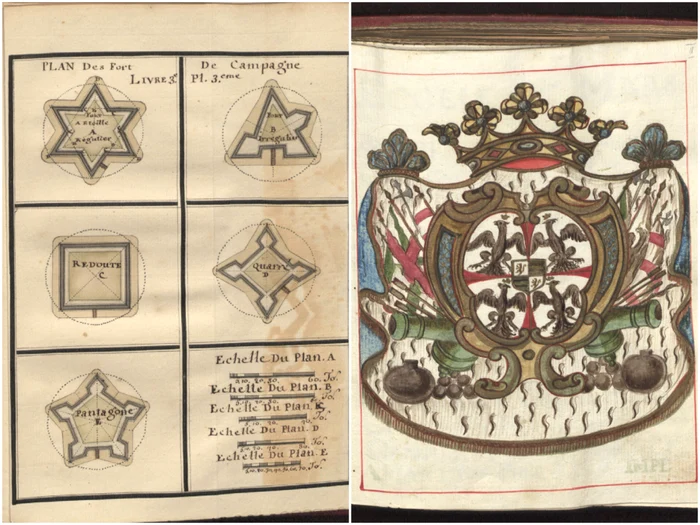 PLAN Des Fort De Campagne
LIVRE 3.e Pl. 3.eme
Fort
A Etoille
A
Regulier
Fort
B
Irregulie
REDOUTE
C
Quarré
D
Pantagone
E
Echelle Du Plan. A
10. 20. 30. 60. To.
Echelle Du Plan. B
Echelle Du Plan.
Echelle Du Plan. D
Echelle Du Plan. E